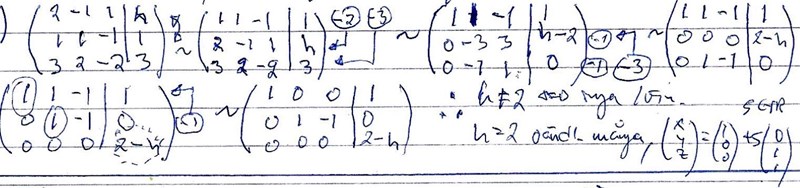 ) (2 -1 1 | h; 1 1 -1 | 1; 3 2 -2 | 3) ~ (1 1 -1 | 1; 2 -1 1 | h; 3 2 -2 | 3) (-2) (-3) ~ (1 1 -1 | 1; 0 -3 3 | h-2; 0 -1 1 | 0) (-1) (-3) ~ (1 1 -1 | 1; 0 0 0 | 2-h; 0 1 -1 | 0)
(1 1 -1 | 1; 0 1 -1 | 0; 0 0 0 | 2-h) (-1) ~ (1 0 0 | 1; 0 1 -1 | 0; 0 0 0 | 2-h) ∴ h≠2 inga lösn.
h=2 oändl. många, (x y z) = (1 0 0) + s(0 1 1) s∈R